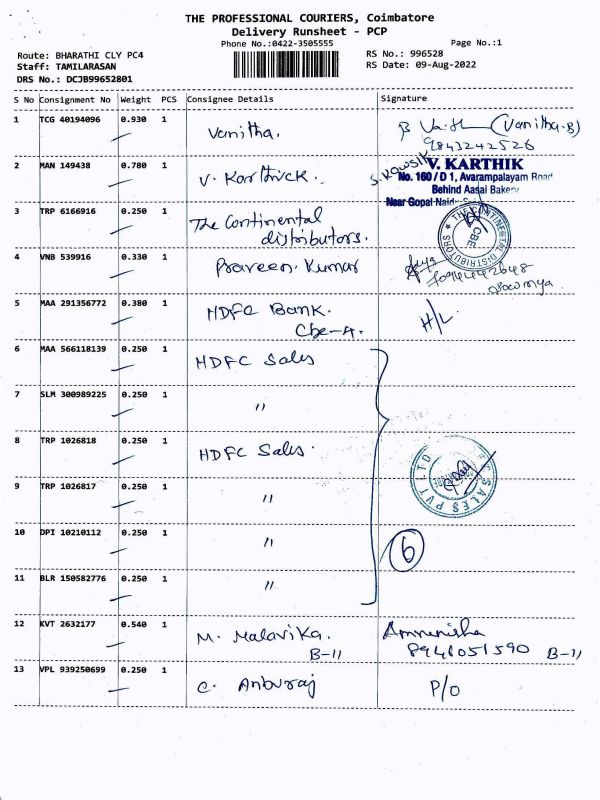 THE PROFESSIONAL COURIERS, Coimbatore
Delivery Runsheet - PCP
Phone No.:0422-3505555
Page No.:1
Route: BHARATHI CLY PC4
RS No.: 996528
Staff: TAMILARASAN
RS Date: 09-Aug-2022
DRS No.: DCJB99652801
S No Consignment No Weight PCS Consignee Details Signature
1 TCG 40194096 0.930 1 Vanitha. (Vanitha.B)
9843242526
2 MAN 149438 0.780 1 V. Karthick. V. KARTHIK
No. 160 / D 1, Avarampalayam Road
Behind Aasai Bakery
Near Gopal Naidu
3 TRP 6166916 0.250 1 The Continental
distributors. THE CONTINENTAL DISTRIBUTORS CBE
4 VNB 539916 0.330 1 Praveen. Kumar
Sowmya.
5 MAA 291356772 0.380 1 HDFC Bank. H/L
Cbe-4.
6 MAA 566118139 0.250 1 HDFC Sales
7 SLM 300989225 0.250 1 "
8 TRP 1026818 0.250 1 HDFC Sales.
SALES PVT LTD
9 TRP 1026817 0.250 1 "
10 DPI 10210112 0.250 1 " 6
11 BLR 150582776 0.250 1 "
12 KVT 2632177 0.540 1 M. Malavika.
B-11 8941051590 B-11
13 VPL 939250699 0.250 1 C. Anburaj P/O